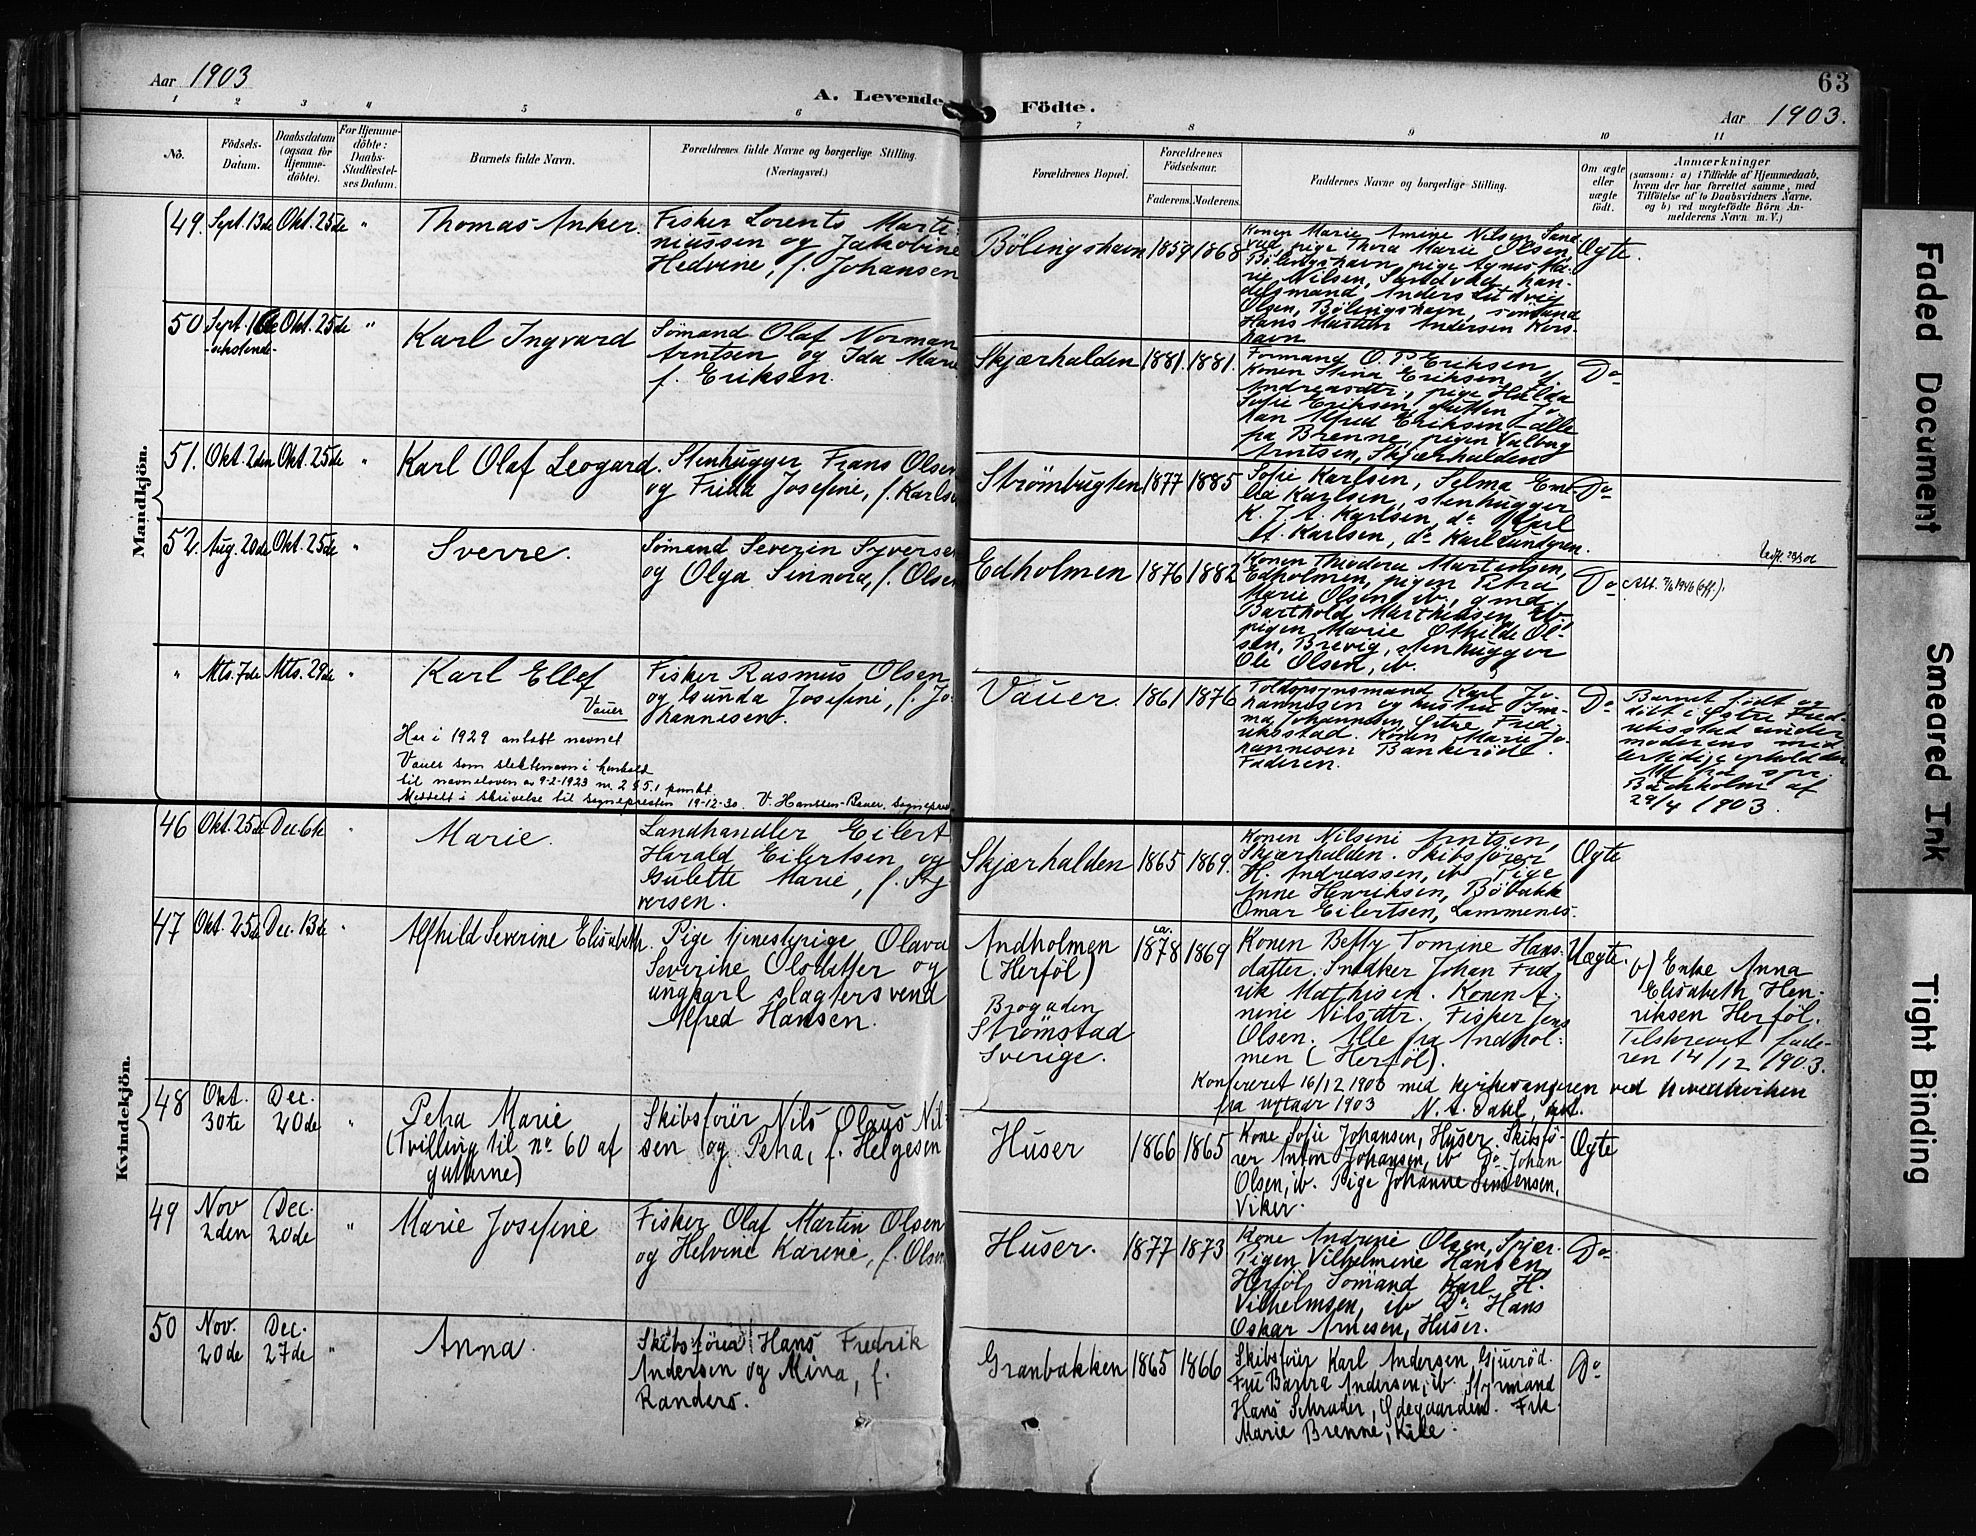 Aar 1903
A. Levende Födte.
63
Aar 1903.
1 2 3 4 5 6 7 8 9 10 11
No.
Födsels-
Datum.
Daabsdatum
(ogsaa for
Hjemme-
döbte).
For Hjemme-
döbte:
Daabs-
Stadfæstel-
ses Datum.
Barnets fulde Navn.
Forældrenes fulde Navne og borgerlige Stilling.
(Næringsvei.)
Forældrenes Bopæl.
Forældrenes
Födselsaar.
Faderens. Moderens.
Faddernes Navne og borgerlige Stilling.
Om ægte
eller
uægte
födt.
Anmærkninger
(saasom: a) i Tilfælde af Hjemmedaab,
hvem der har forrettet samme, med
Tilföielse af to Daabsvidners Navne,
og b) ved uægtefödte Börn An-
melderens Navn m. V.)
Mandkjön.
49. Sept. 13de Okt. 25de "
Thomas Anker.
Fisker Lorents Marti-
niussen og Jakobine
Hedvine, f. Johansen
Bölingshavn 1859 1868
Konen Marie Amine Nilsen Sand-
vad, pige Thora Marie Olsen,
Bölingshavn, pige Agnes Ma-
rie Nilsen, Sandvad, han-
delsmand Anders Ludvig
Olsen, Bölingshavn, sømand
Hans Martin Andersen Kors-
havn
Ægte.
50 Sept. Okt. 25de "
Karl Ingvard
Sømand Olaf Norman
Arntsen og Ida Marie
f. Eriksen.
Skjærhalden 1881. 1881.
Formand O. P. Eriksen,
Konen Stina Eriksen, f.
Andreasdtr, pige Hulda
Sofie Eriksen, gutten Jo-
han Alfred Eriksen - alle
fra Brenne, pigen Valborg
Arntsen, Skjærhalden
Do
51. Okt. 2den Okt. 25de "
Karl Olaf Leogard.
Stenhugger Frans Olsen
og Frida Josefine, f. Karlsen
Strömbugten 1877 1885
Sofie Karlsen, Selma Emi-
lia Karlsen, stenhugger
K. J. A. Karlsen, do Karl
A. Karlsen, do Karl Lundgren.
Do
52. Aug. 20de Okt. 25de "
Sverre.
Sømand Severin Syversen
og Olga Sinnora, f. Olsen
Edholmen 1876 1882
Konen Theodora Martinsen,
Edholmen, pigen Petra
Marie Olsen, ib., gmd.
Barthold Marthinsen, ib.
pigen Marie Othilde Ol-
sen, Brevig, stenhugger
Ole Olsen, ib.
Do
" Mts. 7de Mts. 29de "
Karl Ellef
Vauer
Har i 1929 antatt navnet
Vauer som slektsnavn i henhold
til navneloven av 9-2-1923 nr. 2 § 5, 1 punkt.
Meddelt i skrivelse til sognepresten 19-12-30. V. Hanssen-Bauer, sogneprest
Fisker Rasmus Olsen
og Gunda Josefine, f. Jo-
hannesen.
Vauer. 1861 1876
Toldopsynsmand Karl Jo-
hannesen og hustru Em-
ma Johannesen, Østre Fred-
rikstad. Konen Marie Jo-
hannesen Bankeröd.
Faderen.
Do
Barnet født og
døbt i Østre Fred-
rikstad under
moderens mid-
lertidige ophold der
Att. fra spr.
Buchholm af
29/4 1903.
Kvindekjön.
46 Okt. 25de Dec. 6te "
Marie.
Landhandler Eilert
Harald Eilertsen og
Gulette Marie, f. Sy-
versen.
Skjærhalden 1865 1869.
Konen Nilsine Arntsen,
Skjærhalden. Skibsfører
H. Andreassen, ib. Pige
Anne Henriksen, Böbakk
Omar Eilertsen, Lammenes.
Ægte
47 Okt. 25de Dec. 13de "
Alfhild Severine Elisabeth.
Pige tjenestepige Olava
Severine Olsdatter og
ungkarl slagtersvend
Alfred Hansen.
Andholmen
(Herföl)
Brogaden
Strömstad
Sverige.
ca.
1878 1869
Konen Betty Tomine Hans-
datter. Snedker Johan Fred
rik Mathisen. Konen A-
nine Nilsdtr. Fisker Jens
Olsen. Alle fra Andhol-
men (Herföl).
Uægte.
b) Enke Anna
Elisabeth Hen-
riksen Herföl.
Tilskrevet fade-
ren 14/12 1903.
Konfereret 16/12 1903 med kirkesangeren ved hovedkirken
fra nytaar 1903 N. A. Dahl, spr.
48 Okt. 30te Dec. 20de "
Petra Marie
(Tvilling til no 60 af
gutterne)
Skibsfører Nils Olaus Nil-
sen og Petra, f. Helgesen
Huser 1866 1865
Kone Sofie Johansen, Huser. Skibsfø-
rer Anton Johansen, ib Do Johan
Olsen, ib. Pige Johanne
Viker.
Ægte
49 Nov 2den Dec. 20de "
Marie Josefine
Fisker Olaf Martin Olsen
og Helvine Karine, f. Olsen
Huser. 1877 1873
Kone Andrine Olsen, Spjær.
Pigen Vilhelmine Hansen
Herföl, Sømand Karl H.
Vilhelmsen, ib Do Hans
Oskar Arnesen, Huser.
Do
50 Nov. 20de Dec. 27de "
Anna.
Skibsfører Hans Fredrik
Andersen og Mina, f.
Randers.
Granbakken 1865 1866
Skibsfører Karl Andersen, Gjuerød.
Fru Barbra Andersen, ib. Styrmand
Hans Schrader, Ødegaarden. Frk.
Marie Brenne, Kile.
Do
Faded Document
Smeared Ink
Tight Binding